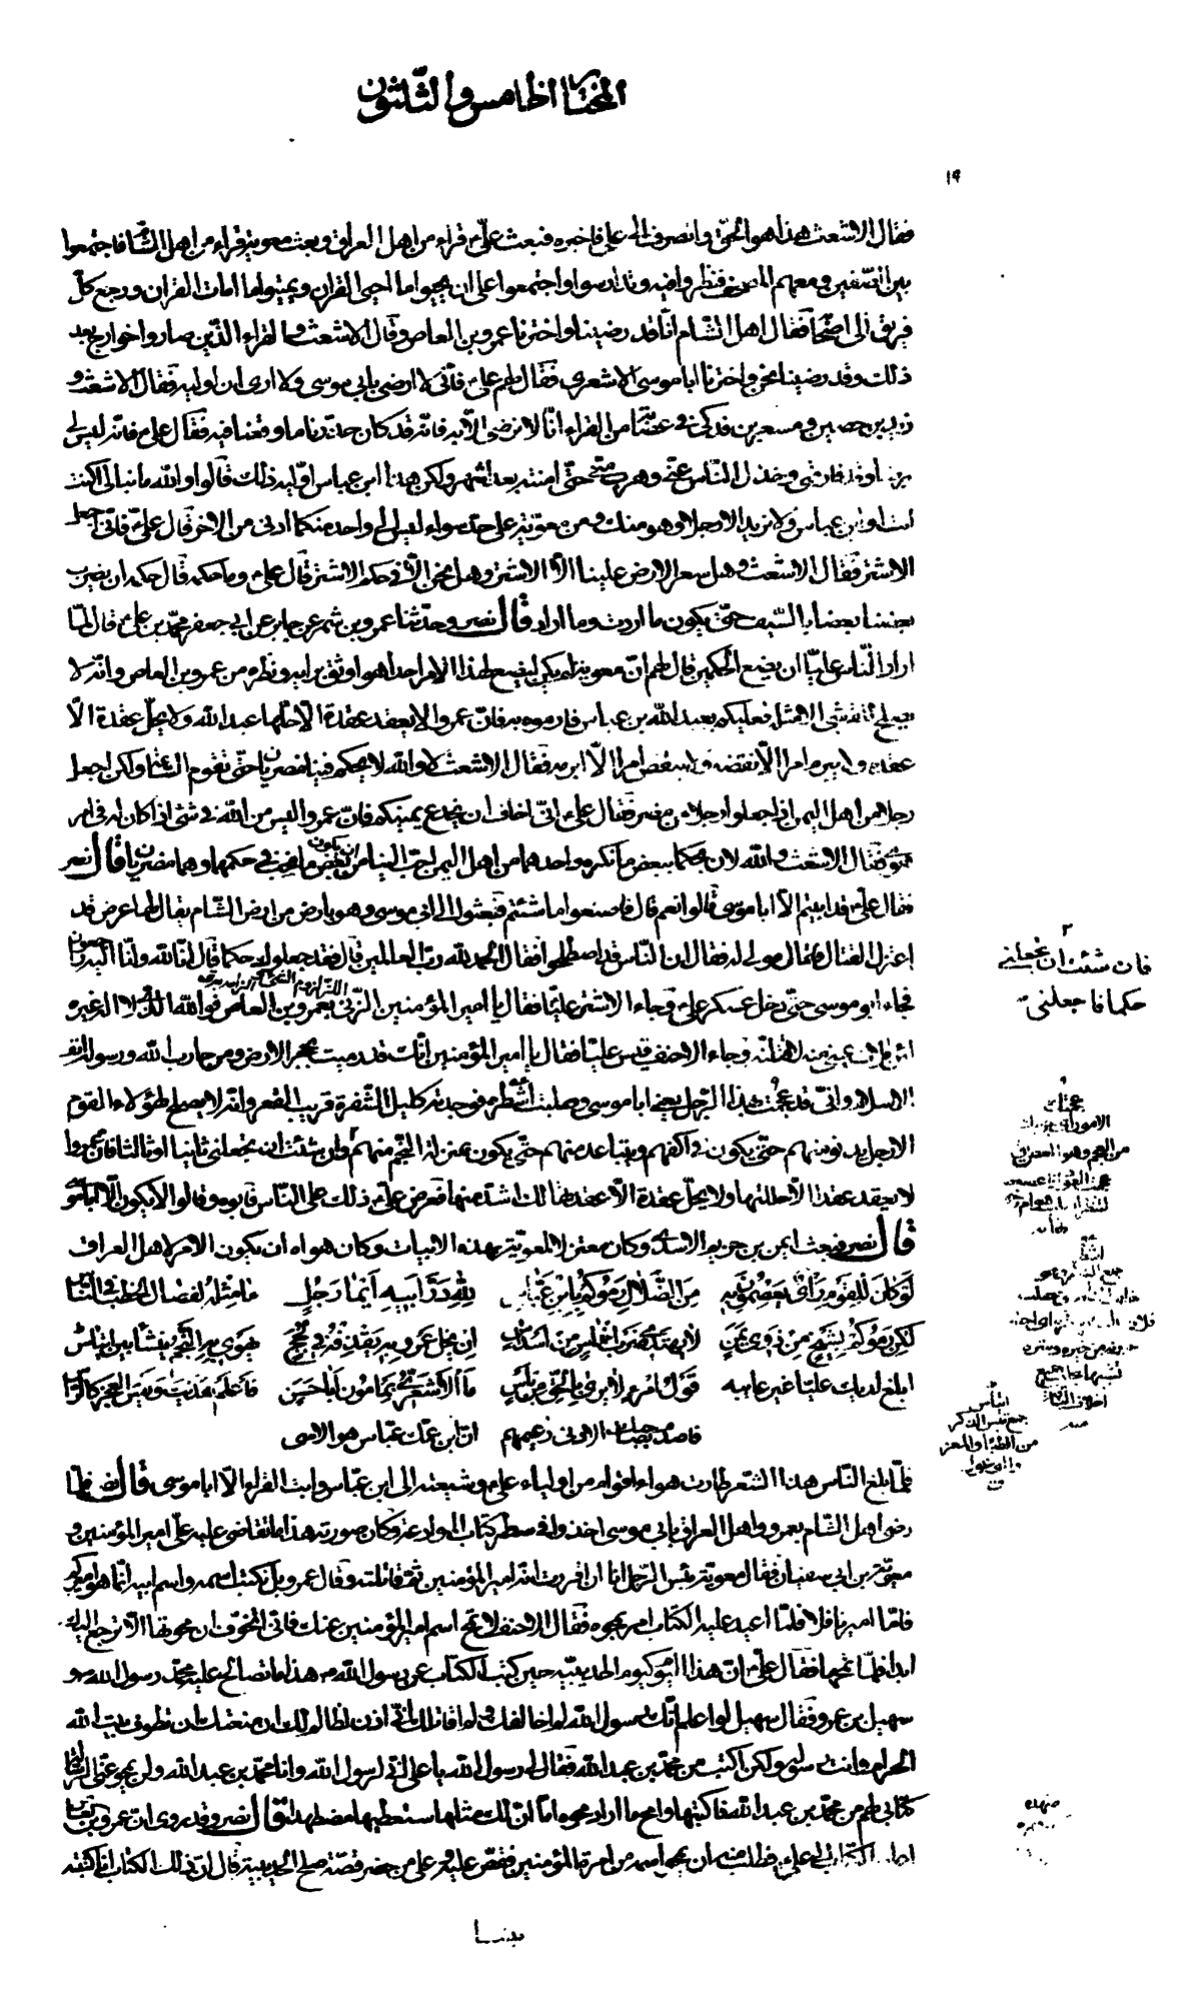 المختار الخامس والثلثون
١٩
فقال الاشعث هذا هو الحق وانصرف الى علي فاخبره فبعث علي قراء من اهل العراق وبعث معوية قراء من اهل الشام فاجتمعوا
بين الصفين ومعهم المصحف فنظروا فيه وتدارسوا واجتمعوا على ان يحيوا ما احيى القران ويميتوا ما امات القران ورجع كل
فريق الى اصحابه فقال اهل الشام انا قد رضينا واخترنا عمرو بن العاص وقال الاشعث والقراء الذين صاروا خوارج بعد
ذلك وقد رضينا نحن واخترنا ابا موسى الاشعري فقال لهم علي فاني لا ارضى بابي موسى ولا ارى ان اوليه فقال الاشعث و
زيد بن حصين ومسعر بن فدكي في عصابة من القراء انا لا نرضى الا به فانه قد كان حذرنا ما وقعنا فيه فقال علي فانه ليس لي
برضا وقد فارقني وخذل الناس عني وهرب مني حتى امنته بعد اشهر ولكن هذا ابن عباس اوليه ذلك قالوا والله ما نبالي اكنت
انت او ابن عباس ولا نريد الا رجلا هو منك ومن معوية على حد سواء ليس الى واحد منكما ادنى من الاخر قال علي فاني اجعل
الاشتر فقال الاشعث وهل سعر الارض علينا الا الاشتر وهل نحن الا في حكم الاشتر قال علي وما حكمه قال حكمه ان يضرب
بعضنا بعضا بالسيف حتى يكون ما اردت وما اراد قال نصر وحدثنا عمرو بن شمر عن جابر عن ابي جعفر محمد بن علي قال لما
اراد الناس عليا ان يضع الحكمين قال لهم ان معوية لم يكن ليضع لهذا الامر احدا هو اوثق برايه ونظره من عمرو بن العاص وانه لا
يصلح للقرشي الا مثله فعليكم بعبد الله بن عباس فارموه به فان عمروا لا يعقد عقدة الا حلها عبد الله ولا يحل عقدة الا
عقدها ولا يبرم امرا الا نقضه ولا ينقض امرا الا ابرمه فقال الاشعث لا والله لا يحكم فينا مضريان حتى تقوم الساعة ولكن اجعل
رجلا من اهل اليمن اذ جعلوا رجلا من مضر فقال علي اني اخاف ان يخدع يمنيكم فان عمروا ليس من الله في شئ اذا كان له في امر
هوى فقال الاشعث والله لان يحكما ببعض ما نكره واحدهما من اهل اليمن احب الينا من ان يكون بعض ما نحب في حكمهما وهما مضريان قال نصر
فقال علي قد ابيتم الا ابا موسى قالوا نعم قال فاصنعوا ما شئتم فبعثوا الى ابي موسى وهو بارض من ارض الشام يقال لها عرض قد
اعتزل القتال فاتاه مولى له فقال ان الناس قد اصطلحوا فقال الحمد لله رب العالمين قال فقد جعلوك حكما قال انا لله وانا اليه راجعون
فجاء ابو موسى حتى دخل عسكر علي وجاء الاشتر عليا فقال يا امير المؤمنين الزني بعمرو بن العاص فوالله الذي لا اله غيره
لئن ملات عيني منه لاقتلنه وجاء الاحنف قيس عليا فقال يا امير المؤمنين انك قد رميت بحجر الارض ومن حارب الله ورسوله انف
الاسلام واني قد عجمت هذا الرجل يعني ابا موسى وحلبت اشطره فوجدته كليل الشفرة قريب القعر وانه لا يصلح لهؤلاء القوم
الا رجل يدنو منهم حتى يكون في اكفهم ويتباعد منهم حتى يكون بمنزلة النجم منهم وان شئت ان تجعلني ثانيا او ثالثا فان عمروا
لا يعقد عقدا الا حللتها ولا يحل عقدة الا عقدت لك اشد منها فعرض علي ذلك على الناس فابوه وقالوا لا يكون الا ابا موسى
قال نصر فبعث ايمن بن خريم الاسدي وكان معتزلا لمعوية بهذه الابيات وكان هواه ان يكون الامر لاهل العراق
لو كان للقوم راى يعصمون به من الضلال رموكم بابن عباس لله در ابيه ايما رجل ما مثله لفصال الخطب في الناس
لكن رموكم بشيخ من ذوي يمن لا يهتدي ضرب اخماس لاسداس ان يخل عمرو به يقذفه في لجج يهوي به النجم
ابلغ لديك عليا غير عايبه قول امرئ لا يرى في الحق من باس ما الاشعري بمامون ابا حسن فاعلم هديت وليس العجز كالراس
فاصدم بصاحبك الادنى زعيمهم ان ابن عمك عباس هو الاسى
فلما بلغ الناس هذا الشعر طارت هواء اقوام من اولياء علي وشيعته الى ابن عباس وابت القراء الا ابا موسى قال نصر فلما
رضي اهل الشام بعمرو واهل العراق بابي موسى اخذوا في سطر كتاب الموادعة وكان صورته هذا ما تقاضى عليه علي امير المؤمنين و
معوية بن ابي سفيان فقال معوية بئس الرجل انا ان اقررت انه امير المؤمنين ثم قاتلته وقال عمرو بل نكتب اسمه واسم ابيه انما هو اميركم
فاما اميرنا فلا فلما اعيد عليه الكتاب امر بمحوه فقال الاحنف لا تمح اسم امير المؤمنين عنك فاني اتخوف ان محوتها الا ترجع اليك
ابدا فلا تمحها فقال علي ان هذا اليوم كيوم الحديبية حين كتب الكتاب عن رسول الله هذا ما تصالح عليه محمد رسول الله و
سهيل بن عمرو فقال سهيل لو اعلم انك رسول الله لم اخالفك ولم اقاتلك اني اذن لظالم لك ان منعتك ان تطوف بيت الله
الحرام وانت رسوله ولكن اكتب من محمد بن عبد الله فقال لي رسول الله يا علي اني لرسول الله وانا محمد بن عبد الله ولن يمحو عني الرسالة
كتابي لهم من محمد بن عبد الله فاكتبها وامح ما اراد محوه اما ان لك مثلها ستعطيها مضطهدا قال نصر وقد روى ان عمرو بن العاص
الكتاب الى علي فطلب منه ان يمحو اسمه من امرة المؤمنين فقص عليه وعلى من حضر قصة صلح الحديبية قال ان ذلك الكتاب انا كتبته
بيننا
فان شئت ان تجعلني
حكما فاجعلني
عجمت
الامور
من العجم وهو العض